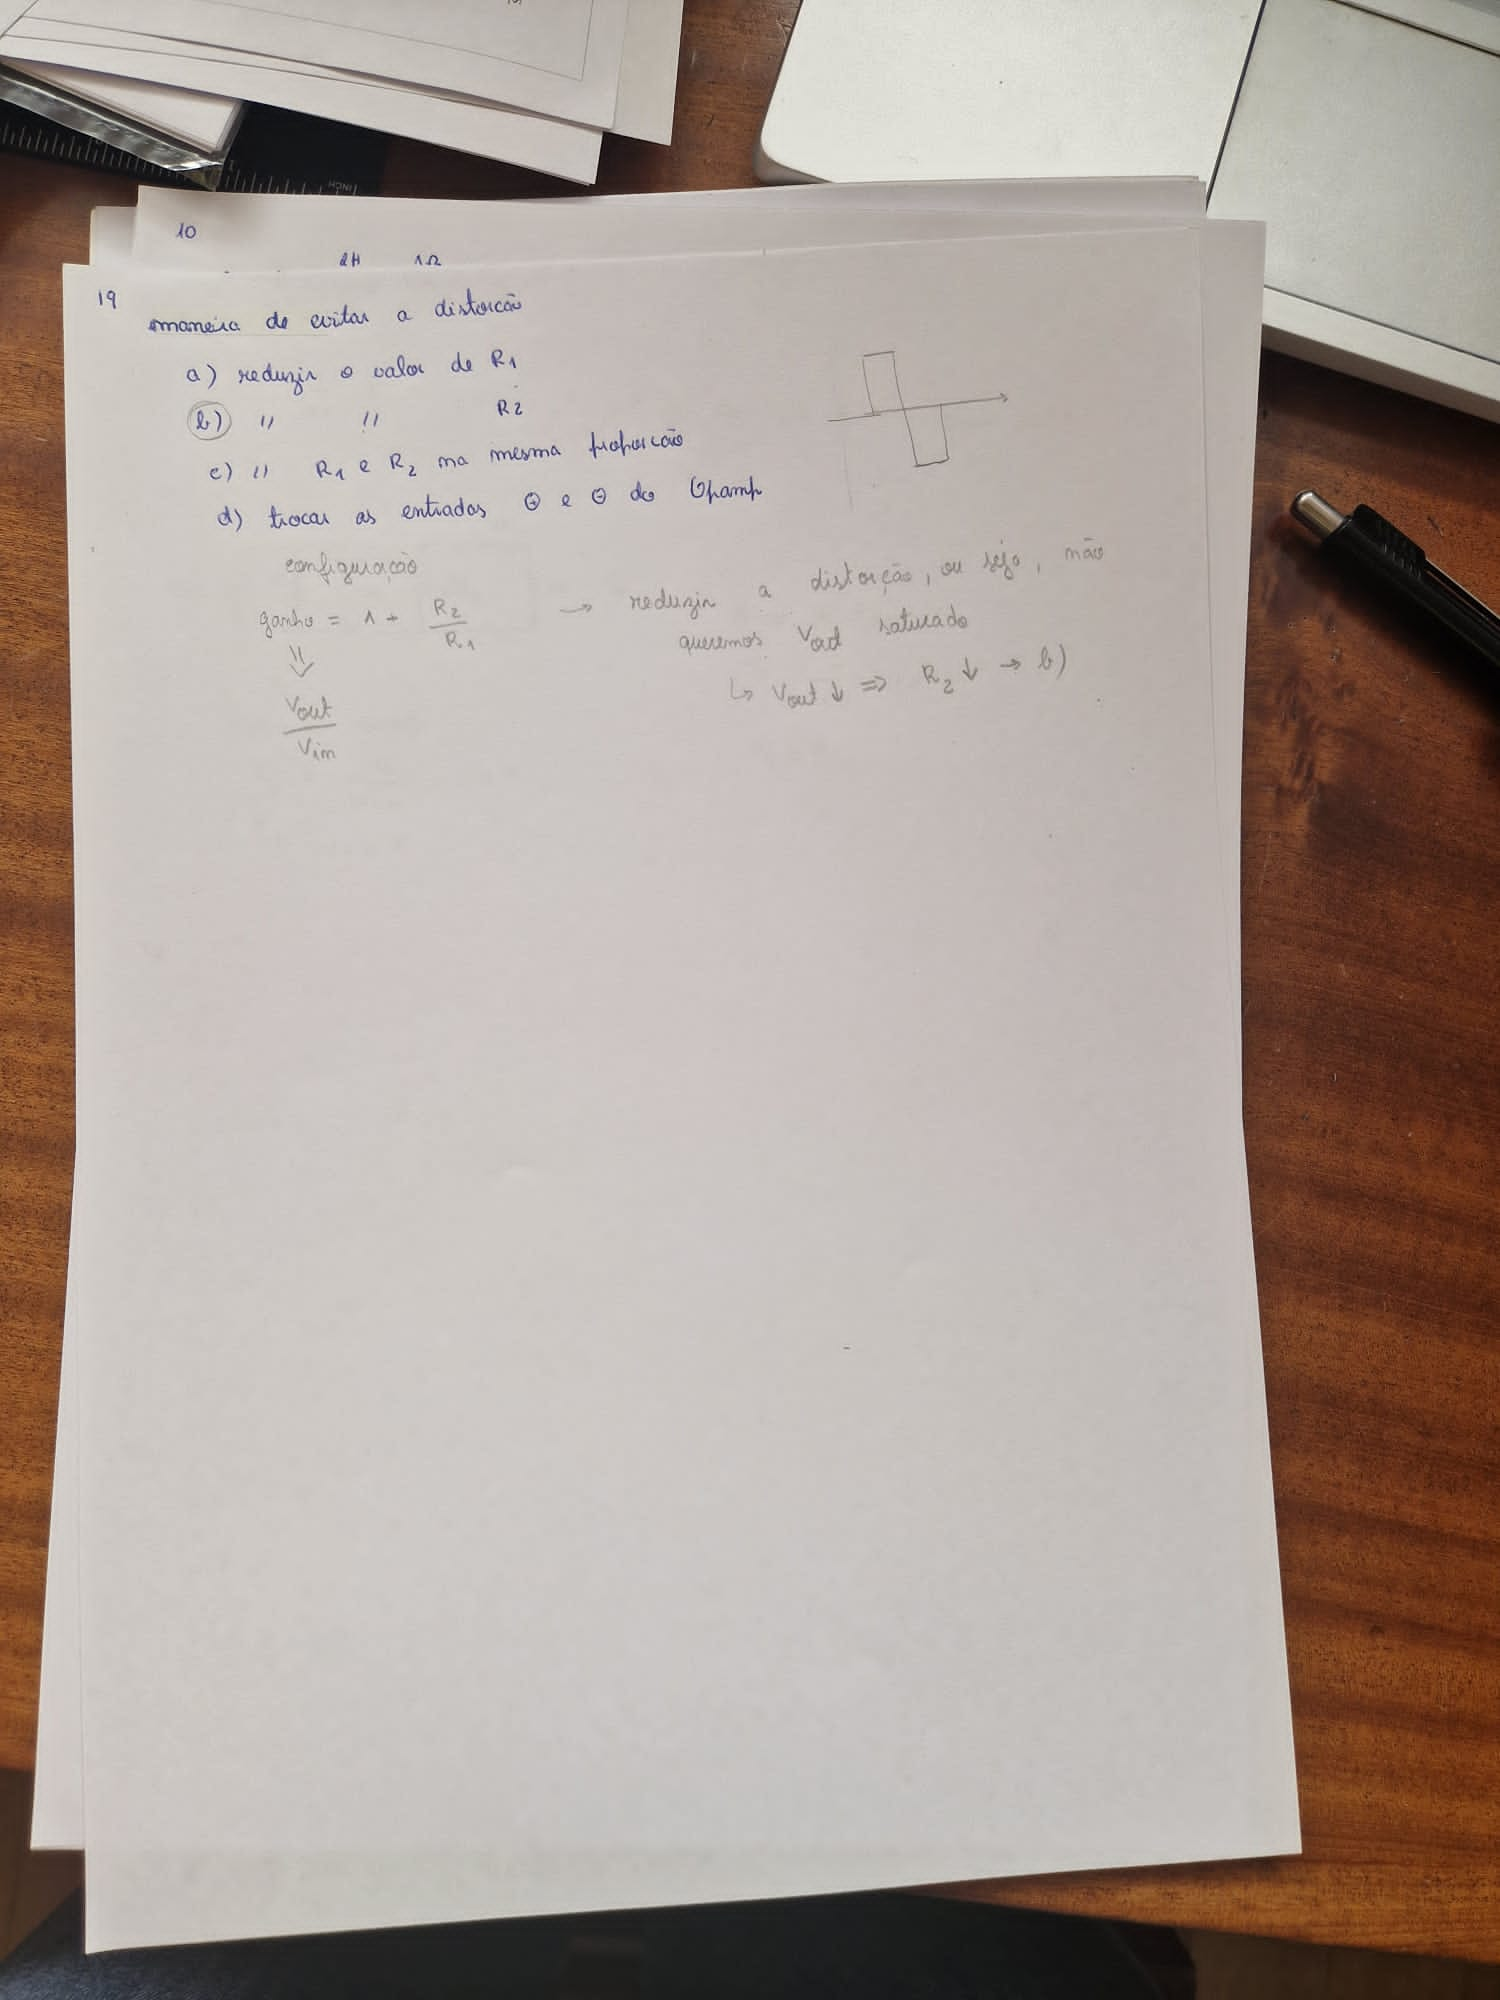 INCH
10
2H 1Ω
19
maneira de evitar a distorcão
a) reduzir o valor de R1
b) " " R2
c) " R1 e R2 na mesma proporcão
d) trocar as entradas ⊕ e ⊖ do Opamp
configuração
ganho = 1 + R2/R1 → reduzir a distorção, ou seja, não
queremos Vout saturado
⇓
↳ Vout ↓ ⇒ R2 ↓ → b)
Vout/Vin